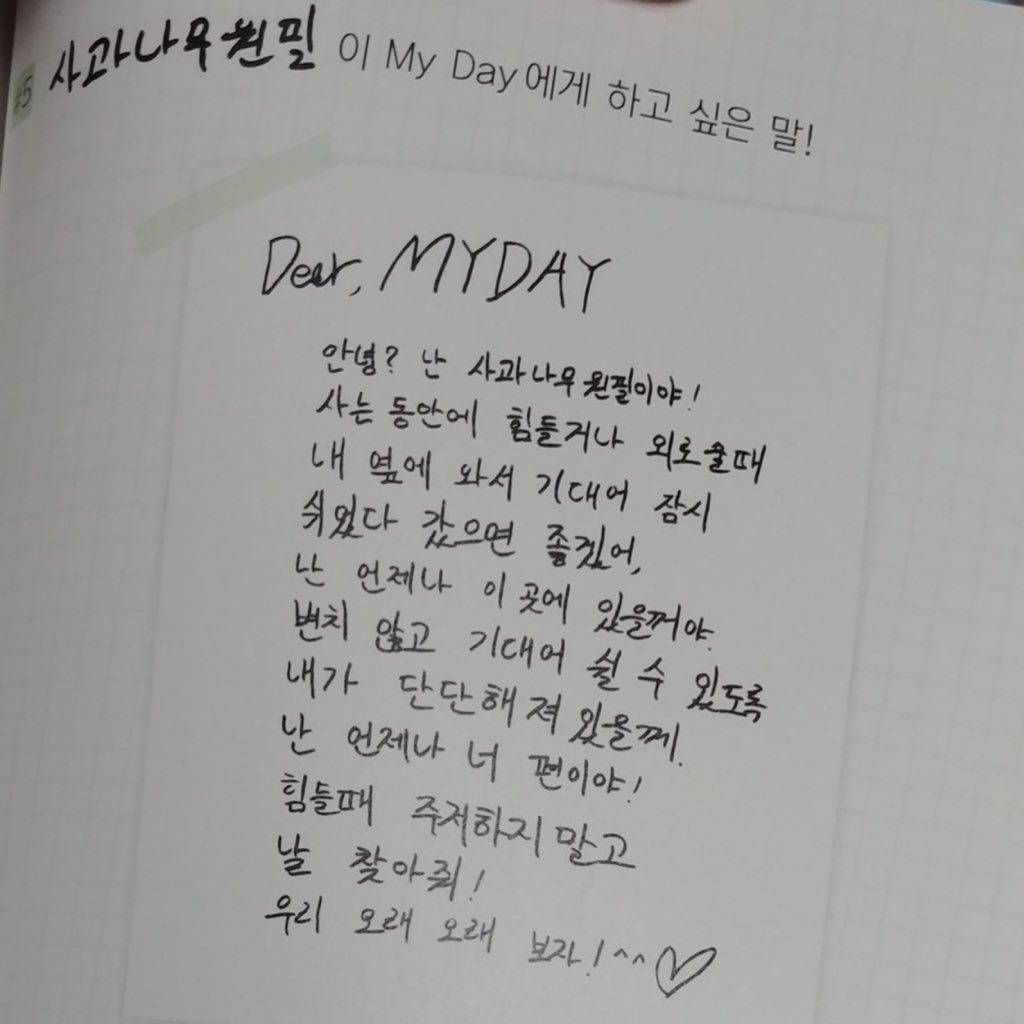 #5 사과나무원필 이 My Day에게 하고 싶은 말!
Dear, MYDAY
안녕? 난 사과나무 원필이야!
사는 동안에 힘들거나 외로울때
내 옆에 와서 기대어 잠시
쉬었다 갔으면 좋겠어,
난 언제나 이 곳에 있을꺼야.
변치 않고 기대어 쉴 수 있도록
내가 단단해져 있을께.
난 언제나 너 편이야!
힘들때 주저하지 말고
날 찾아줘!
우리 오래 오래 보자! ^^♡